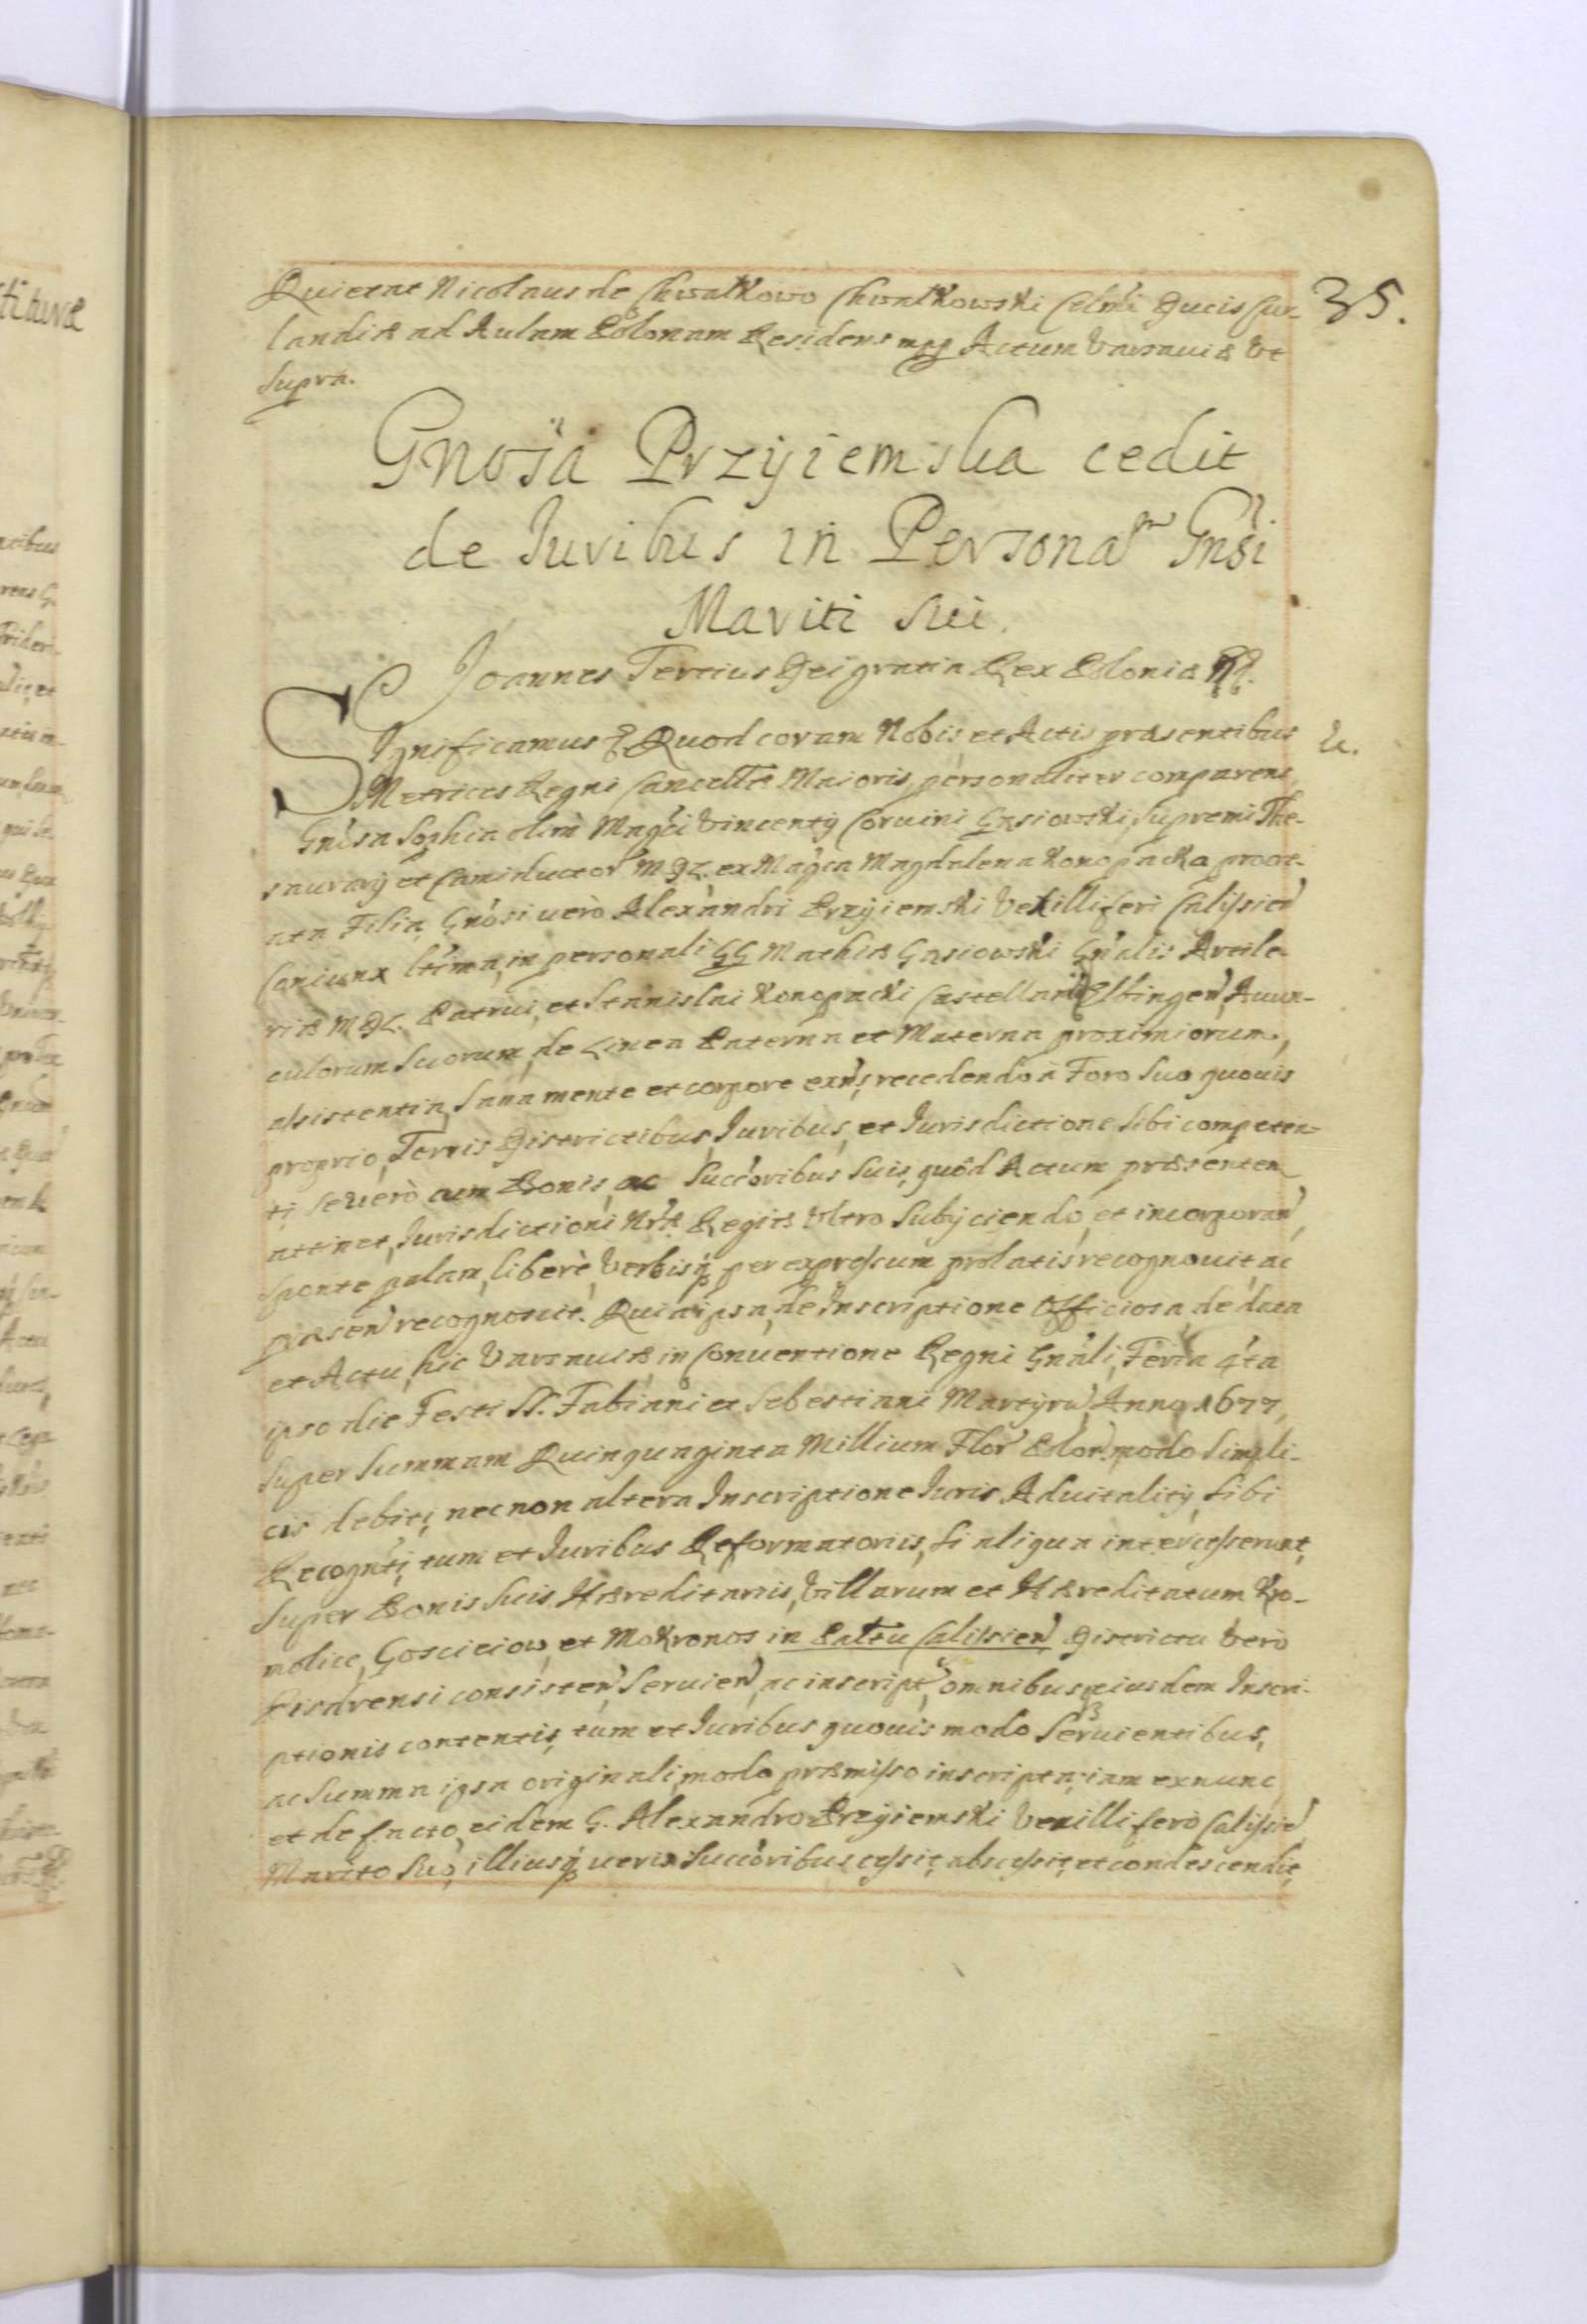 Quietat Nicolaus de Chwałkowo Chwałkowski Celmi Ducis Cur-
landiæ ad Aulam Polonam Residens mpp Actum Varsaviæ Vt
Supra.
35.
Gnosa Przyiemska cedit
de Iuribus in Personam Gnsi
Mariti Sui.
Joannes Tertius Dei gratia Rex Poloniæ
Significamus Quod coram Nobis et Actis præsentibus
Metrices Regni Cancellæ Maioris, personaliter comparens
Gnsa Sophia olim Magci Vincentij Corvini Gąsiowski, Supremi The-
saurarij et Campiductor M.D.L. ex Magca Magdalena Konopacka procre-
ata Filia, Gnosi vero Alexandri Przyiemski Vexilliferi Calissien
Coniunx ltima, in personali GG Mathiæ Gąsiowski Gnalis Artile-
riæ M.D.L. Patrui, et Stanislai Konopacki Castellani Elbingen, Auun-
culorum Suorum, de Linea Paterna et Materna proximiorum,
assistentia, Sana mente et corpore exns, recedendo à Foro Suo quouis
proprio, Terris Districtibus, Iuribus, et Iurisdictione Sibi competen-
ti, Se vero cum Bonis, ac Succoribus Suis, quôd Actum præsentem
attinet, Iurisdictioni Nræ Regiæ Vltro Subijciendo, et incorporan,
Sponte palam, liberè, Verbisq per expressum prolatis recognouit, ac
præsen recognoscit. Quia ipsa, de Inscriptione Officiosa, de data
et Actu, hic Varsauiæ in Conuentione Regni Gnali, Feria 4ta
ipso die Festi SS. Fabiani et Sebestiani Martyrū, Anno 1677,
Super Summam Quinquaginta Millium Flor Polon. modo Simpli-
cis debiti, nec non altera Inscriptione Iuris Aduitalitij Sibi
Recognti, tum et Iuribus Reformatoriis, Si aliqua intercesserunt,
Super Bonis Suis Hæreditariis, Villarum et Hæreditatum Kro-
molice, Goscieiow, et Mokronos, in Paltu Calissien, Districtu Vero
Pisdrensi consisten, Seruien, ac inscript, omnibus eiusdem Inscri-
ptionis contentis, tum et Iuribus quouis modo Seruientibus,
ac Summa ipsa originali, modo præmisso inscripta, iam exnunc
et de facto, eidem G. Alexandro Przyiemski Vexillifero Calissien
Marito Suo, illiusq veris Succoribus cessit, abscessit, et condescendit,